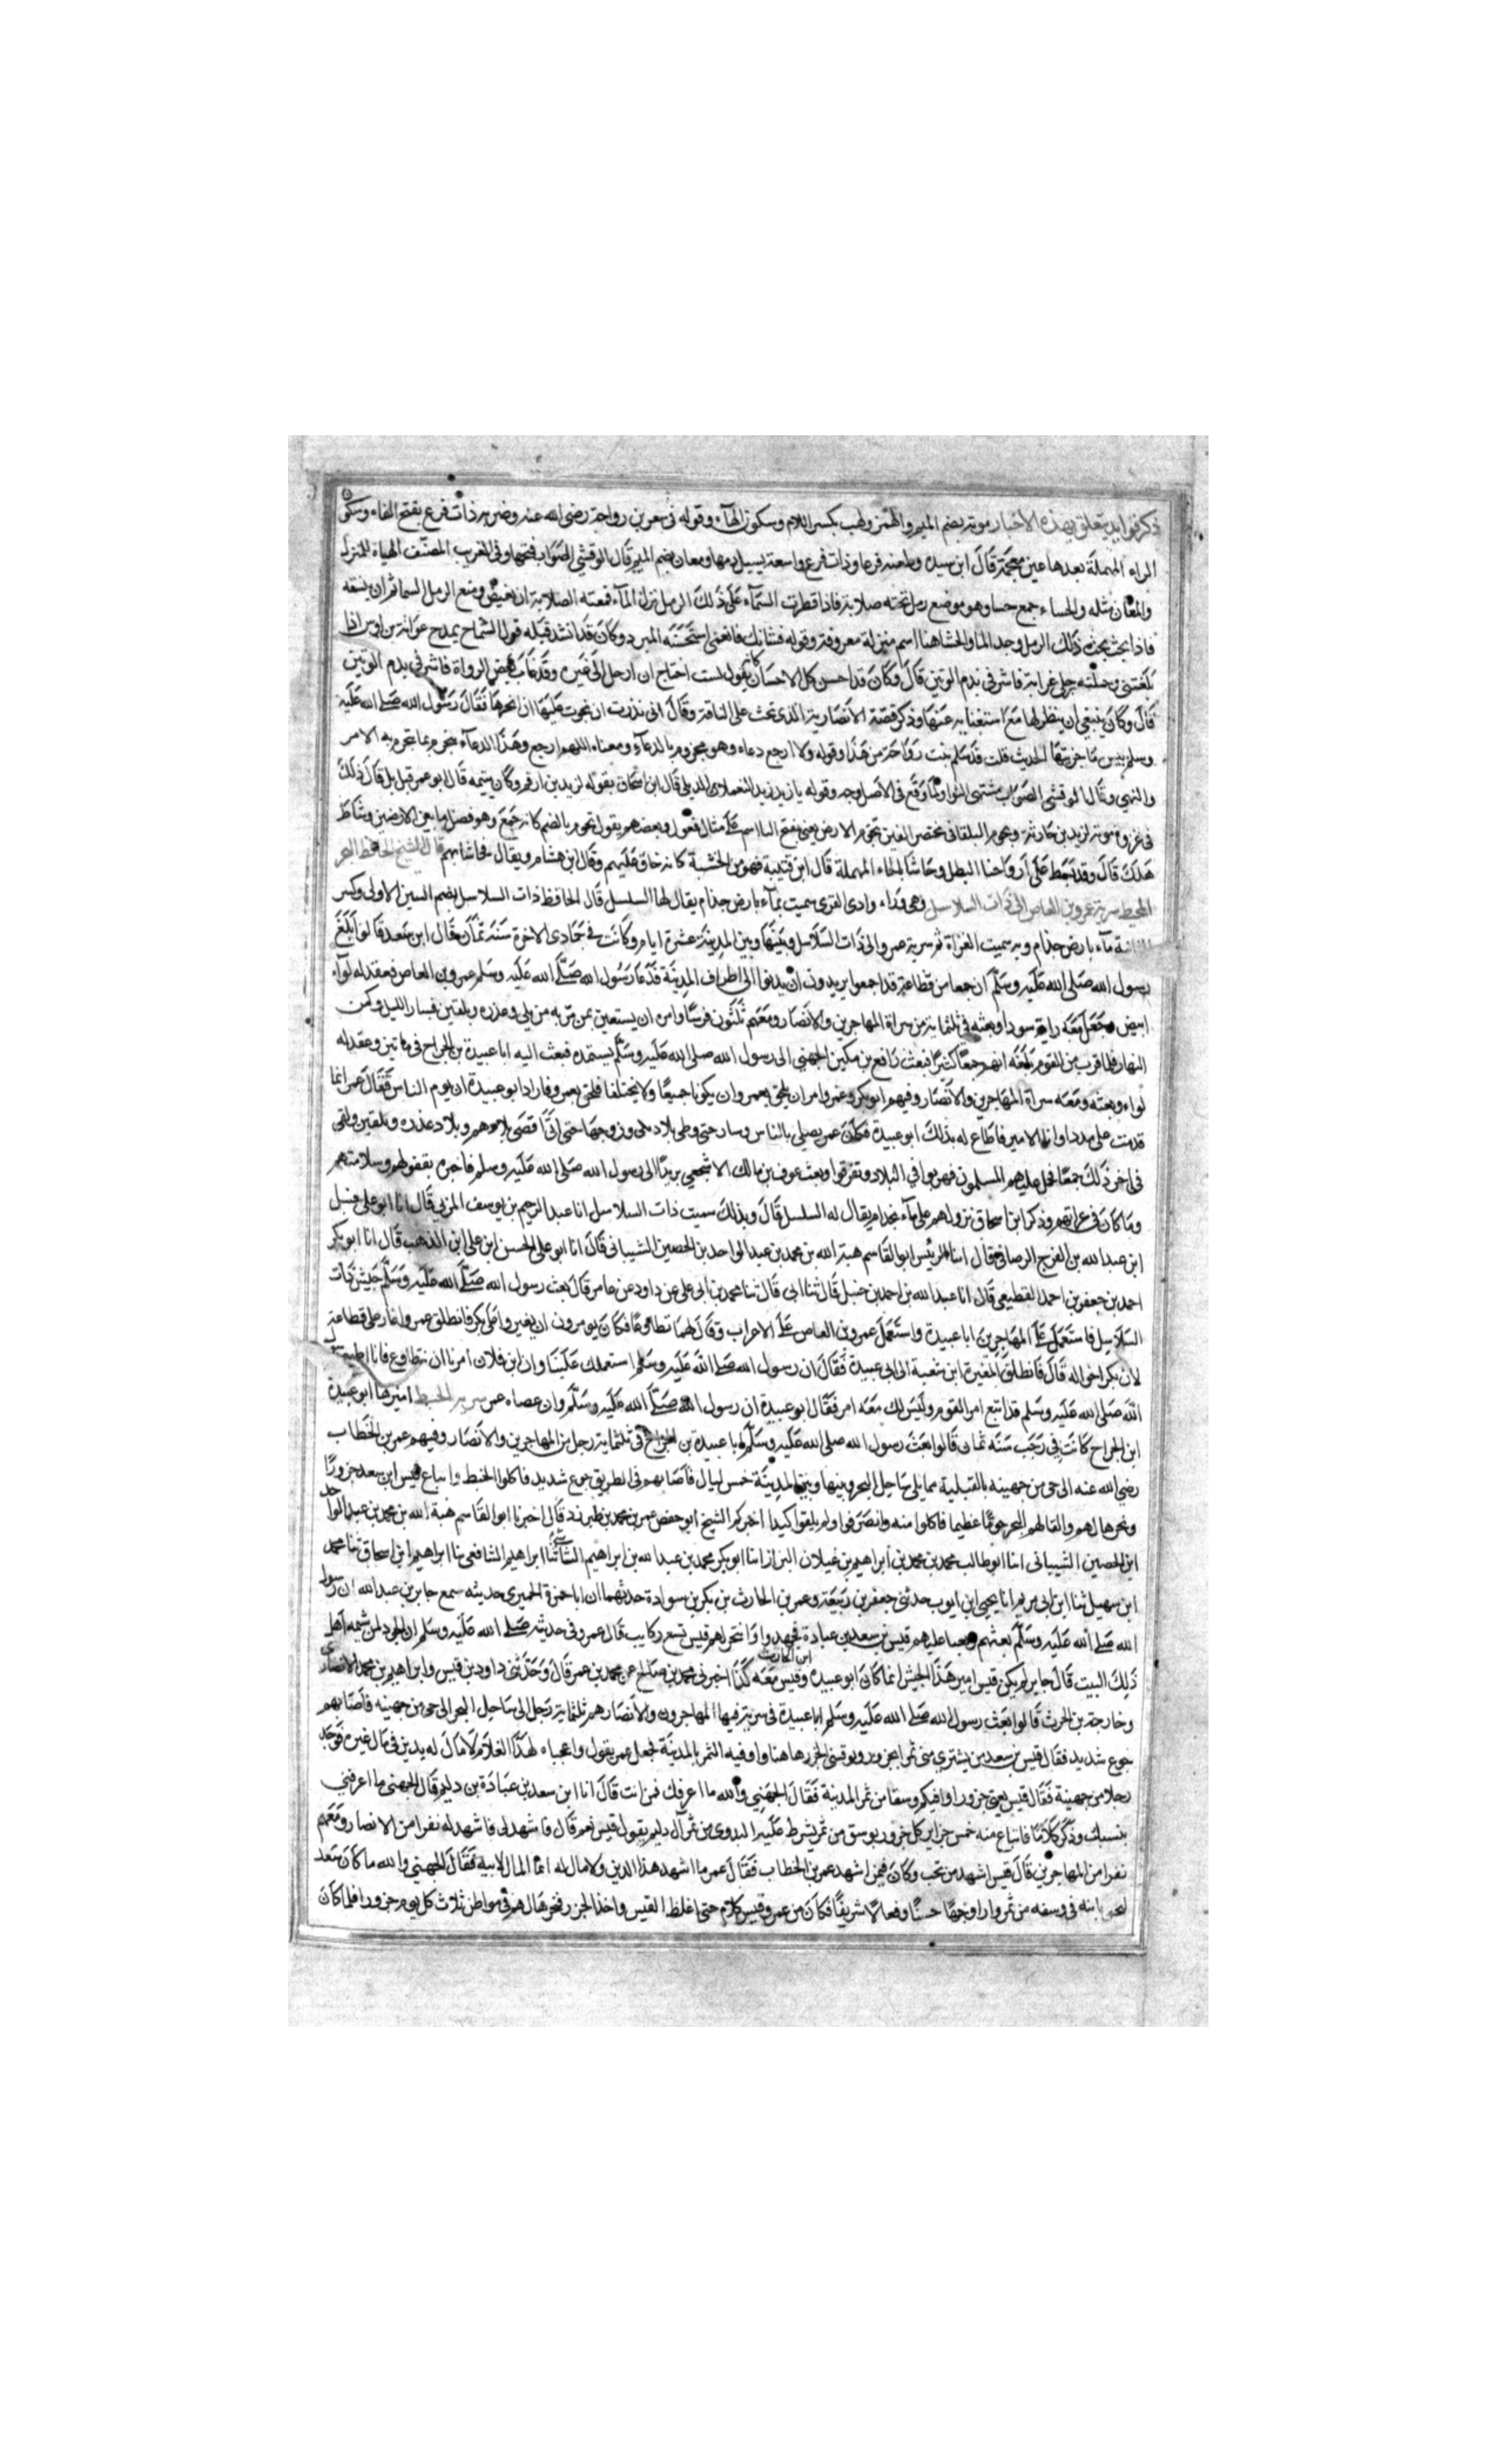 ذكر فوايد يتعلق بهذه الاخبار موته بضم الميم والهمز ولهب بكسر اللام وسكون الهاء وقوله في شعر بن رواحة رضي الله عنه وضربه ذات فرع بفتح الفاء وسكون
الراء المهملة بعدها عين معجمة قال ابن سيده وطعنه فرعا وذات فرع واسعة يسيل دمها ومعان بضم الميم قال الوقشي الصواب فتحها وفي الغريب المصنف المياه المنزل
والمعان مثله والحساء جمع حسا وهو موضع رمل تحته صلابة فاذا قطرت السماء على ذلك الرمل نزل الماء فمنعته الصلابة ان يغيض ومنع الرمل السماثم ان ينشفه
فاذا بحث ذلك الرمل وجد الماء والحشا هنا اسم منزلة معروفة وقوله فشانك فانعمي استحسنه المبرد وكان قد انشد قبله قول الشماخ يمدح عرابة بن اوس اذا
بلغتني وحملت رحلي عرابة فاشرقي بدم الوتين قال وكان قد احسن كل الاحسان كانه يقول لست احتاج ان ارحل الى غيره وقد عاب بعض الرواة فاشرقي بدم الوتين
قال وكان ينبغي ان ينظر لها مع استغنايه عنها وذكر قصة الانصارية الذي نجت على الناقة وقال اني نذرت ان نجوت عليها ان انحرها فقال رسول الله صلى الله عليه
وسلم بئس ما جزيتها الحديث قلت قد سلم بنت رواحة من هذا وقوله ولا ارجع دعاء وهو مجزوم بالدعاء ومعناه اللهم ارجع وهذا الدعاء ينجزم بما ينجزم به الامر
والنهي وقال الوقشي الصواب مشتهي الثوا وما وقع في الاصل وجه وقوله يا زيد زيد اليعملات الذبل قال ابن اسحاق يقوله لزيد بن ارقم وكان يتيمه قال ابو عمر قيل بل قال ذلك
في غزوة موته لزيد بن حارثة وتخوم البلقا في مختصر العين تخوم الارض يعني بفتح التا اسم على مثال فعول وبعضهم يقول تخوم بالضم كانه جمع وهو فصل ما بين الارضين وشاط
هلك قال وقد تخمط على ارواحنا البطل وحاشا بالحاء المهملة قال ابن قتيبة فهو من الخشبة كانه خاف عليهم وقال ابن هشام ويقال فحاشا بهم قال الشيخ الحافظ العز
المحيط سرية عمرو بن العاص الى ذات السلاسل وهي وراء وادي القرى سميت بماء بارض جذام يقال لها السلسل قال الحافظ ذات السلاسل بضم السين الاولى وكسر
الثانية ماء بارض جذام وبه سميت الغزاة ثم سرية عمرو الى ذات السلاسل وبينها وبين المدينة عشرة ايام وكانت في جمادى الاخرة سنة ثمان قال ابن سعد قالوا بلغ
رسول الله صلى الله عليه وسلم ان جمعا من قضاعة قد اجمعوا يريدون ان يدنوا الى اطراف المدينة فدعا رسول الله صلى الله عليه وسلم عمرو بن العاص فعقد له لواء
ابيض وجعل معه راية سودا وبعثه في ثلثماية من سراة المهاجرين والانصار ومعهم ثلثون فرسا وامره ان يستعين بمن مر به من بلي وعذره وبلقين فسار الليل وكمن
النهار فلما قرب من القوم بلغه ان لهم جمعا كثيرا فبعث رافع بن مكين الجهني الى رسول الله صلى الله عليه وسلم يستمده فبعث اليه ابا عبيدة بن الجراح في ماتين وعقد له
لواء وبعث معه سراة المهاجرين والانصار وفيهم ابو بكر وعمر وامر ان يلحق بعمرو ان يكونا جميعا ولا يختلفا فلحق بعمرو فاراد ابو عبيدة ان يوم الناس فقال عمرو انما
قدمت على مددا وانا الامير فاطاع له بذلك ابو عبيدة فكان عمرو يصلي بالناس وسار حتى وطي بلاد بلي ودوخها حتى اتى اقصى بلادهم وبلاد عذره وبلقين ولقي
في اخر ذلك جمعا فحمل عليهم المسلمون فهربوا في البلاد وتفرقوا وبعث عوف بن مالك الاشجعي بريدا الى رسول الله صلى الله عليه وسلم فاخبره بقفولهم وسلامتهم
وما كان في غزاتهم وذكر ابن اسحاق نزولهم على ماء بجذام يقال له السلسل قال وبذلك سميت ذات السلاسل انا عبد الرحيم بن يوسف المزي قال انا ابو علي حنبل
ابن عبد الله بن الفرج الرصافي قال انا الرئيس ابو القاسم هبة الله بن محمد بن عبد الواحد بن الحصين الشيباني قال انا ابو علي الحسن ابن علي ابن المذهب قال انا ابو بكر
احمد بن جعفر بن احمد القطيعي قال انا عبد الله بن احمد بن حنبل قال ثنا ابي قال ثنا محمد بن ابي علي عن داود عن عامر قال بعث رسول الله صلى الله عليه وسلم جيش ذات
السلاسل فاستعمل على المهاجرين ابا عبيدة واستعمل عمرو بن العاص على الاعراب وقال لهما تطاوعا فكان يومرون ان يغيروا على بكر فانطلق عمرو واغار على قضاعة
لان بكر اخواله قال فانطلق المغيرة ابن شعبة الى ابي عبيدة فقال ان رسول الله صلى الله عليه وسلم استعملك علينا وان ابن فلان امرنا ان نتطاوع فانا اطيع
الله صلى الله عليه وسلم قد اتبع امر القوم وليس لك معه امر فقال ابو عبيدة ان رسول الله صلى الله عليه وسلم وان عصاه عمرو سرية الخبط اميرها ابو عبيدة
ابن الجراح كانت في رجب سنه ثمان قالوا بعث رسول الله صلى الله عليه وسلم ابا عبيدة بن الجراح في ثلثماية رجل من المهاجرين والانصار وفيهم عمر بن الخطاب
رضي الله عنه الى حي من جهينه بالقبلية مما يلي ساحل البحر وبينها وبين المدينة خمس ليال فاصابهم في الطريق جوع شديد فاكلوا الخبط وابتاع قيس ابن سعد جزورا
ونحرها لهم والقا لهم البحر حوتا عظيما فاكلوا منه وانصرفوا ولم يلقوا كيدا اخبركم الشيخ ابو حفص عمر بن محمد بن طبرزد قال اخبرنا ابو القاسم هبة الله بن محمد بن عبد الواحد
ابن الحصين الشيباني انا ابو طالب محمد بن محمد بن ابراهيم بن غيلان البزاز انا ابو بكر محمد بن عبد الله بن ابراهيم الشافعي ثنا ابراهيم الشافعي ثنا ابراهيم ابن اسحاق ثنا محمد
ابن سهيل ثنا ابن ابي مريم انا يحيى ابن ايوب حدثني جعفر بن ربيعة وعمر بن الحارث بن بكر بن سوادة حدثهما ان ابا حمزة الحميري حدثه سمع جابر بن عبد الله ان رسول
الله صلى الله عليه وسلم بعثهم وبعثا عليهم قيس بن سعد بن عبادة فجهدوا وانتحر لهم قيس تسع ركايب قال عمرو في حديثه صلى الله عليه وسلم ان الجود لمن شيمة اهل
ذلك البيت قال جابر لم يكن قيس امير هذا الجيش انما كان ابو عبيدة وقيس معه كذا اخبرني محمد بن صالح عن محمد بن عمر قال وحدثني داود بن قيس وابراهيم بن محمد الانصاري
ابن الحارث
وخارجة بن الحرث قالوا بعث رسول الله صلى الله عليه وسلم ابا عبيدة في سرية فيها المهاجرون والانصار هم ثلثماية رجل الى ساحل البحر الى حي من جهينه فاصابهم
جوع شديد فقال قيس بن سعد من يشتري مني تمرا بجزور يوفيني الجزر هاهنا واوفيه التمر بالمدينة فجعل عمر يقول واعجباه لهذا الغلام لا مال له يدين في مال غيره فوجد
رجلا من جهينة فقال قيس بعني جزورا اوفيكم وسقا من تمر المدينة فقال الجهني والله ما اعرفك فمن انت قال انا ابن سعد بن عبادة بن دليم قال الجهني ما اعرفني
بنسبك وذكر كلاما فابتاع منه خمس جزاير كل جزور بوسق من تمر يشرط عليه البدوي من تمر آل دليم يقول قيس نعم قال فاشهد لي فاشهد له نفرا من الانصار ومعهم
نفرا من المهاجرين قال قيس اشهد من تحب وكان فيمن اشهد عمر بن الخطاب فقال عمر ما اشهد هذا الدين ولا مال له انما المال لابيه فقال الجهني والله ما كان سعد
ليخني بابنه في وسقه من تمر وارا وجها حسنا وفعالا شريفا فكان من عمر وقيس كلام حتى اغلظ القيس واخذ الجزر فنحرها لهم في مواطن ثلاث كل يوم جزورا فلما كان